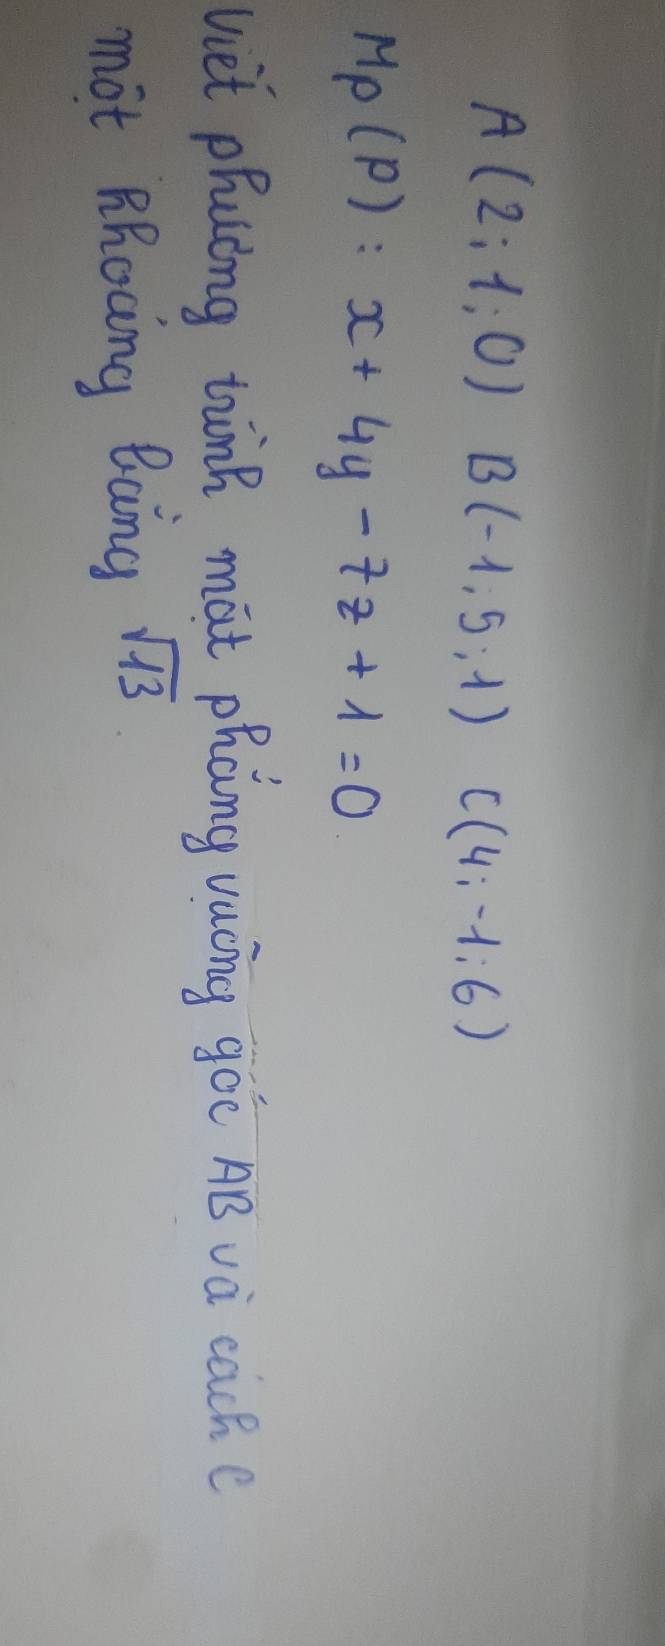 A(2;1;0) B(-1;5;1) C(4;-1;6)
Mp(P): x + 4y - 7z + 1 = 0
Viết phương trình mặt phẳng vuông góc AB và cách C
một khoảng bằng √13.